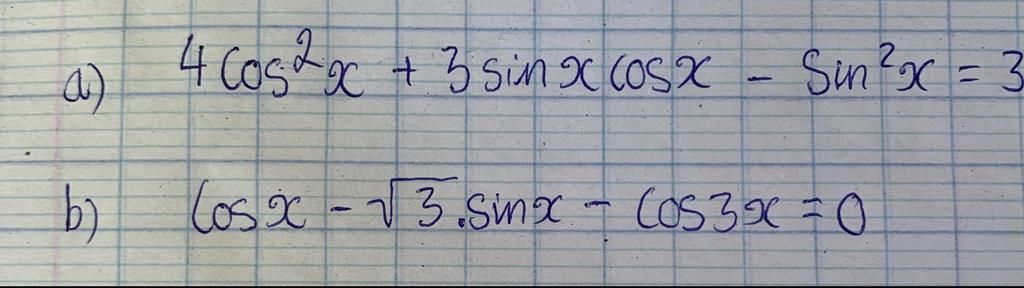 a) 4 Cos²x + 3 sin x cos x - Sin²x = 3
b) Cos x - √3.sin x - Cos3x = 0